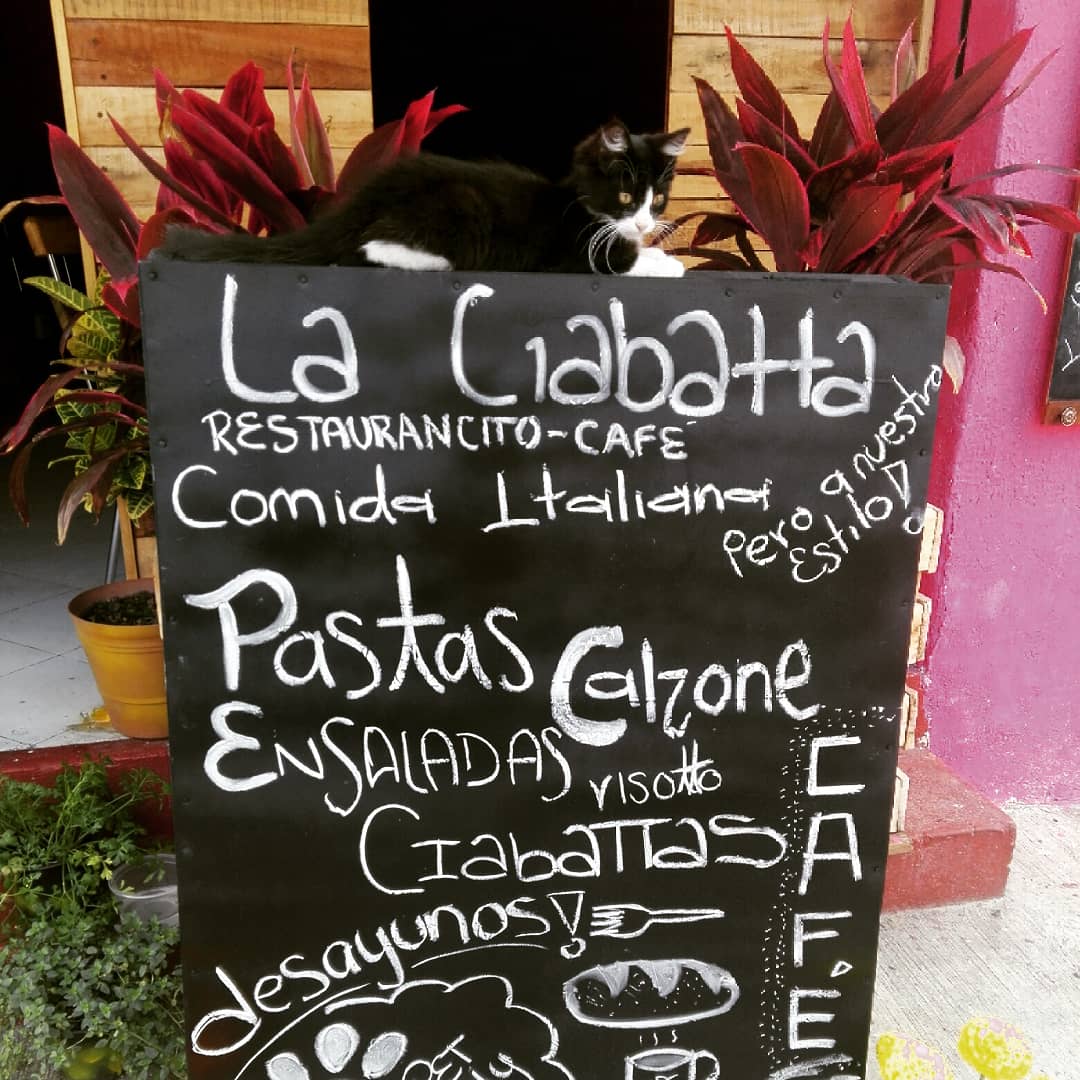 La Ciabatta
RESTAURANCITO-CAFE
Comida Italiana
pero a nuestro
Estilo!
Pastas Calzone
ENSALADAS risotto
CIABATTAS
desayunos!
CAFE